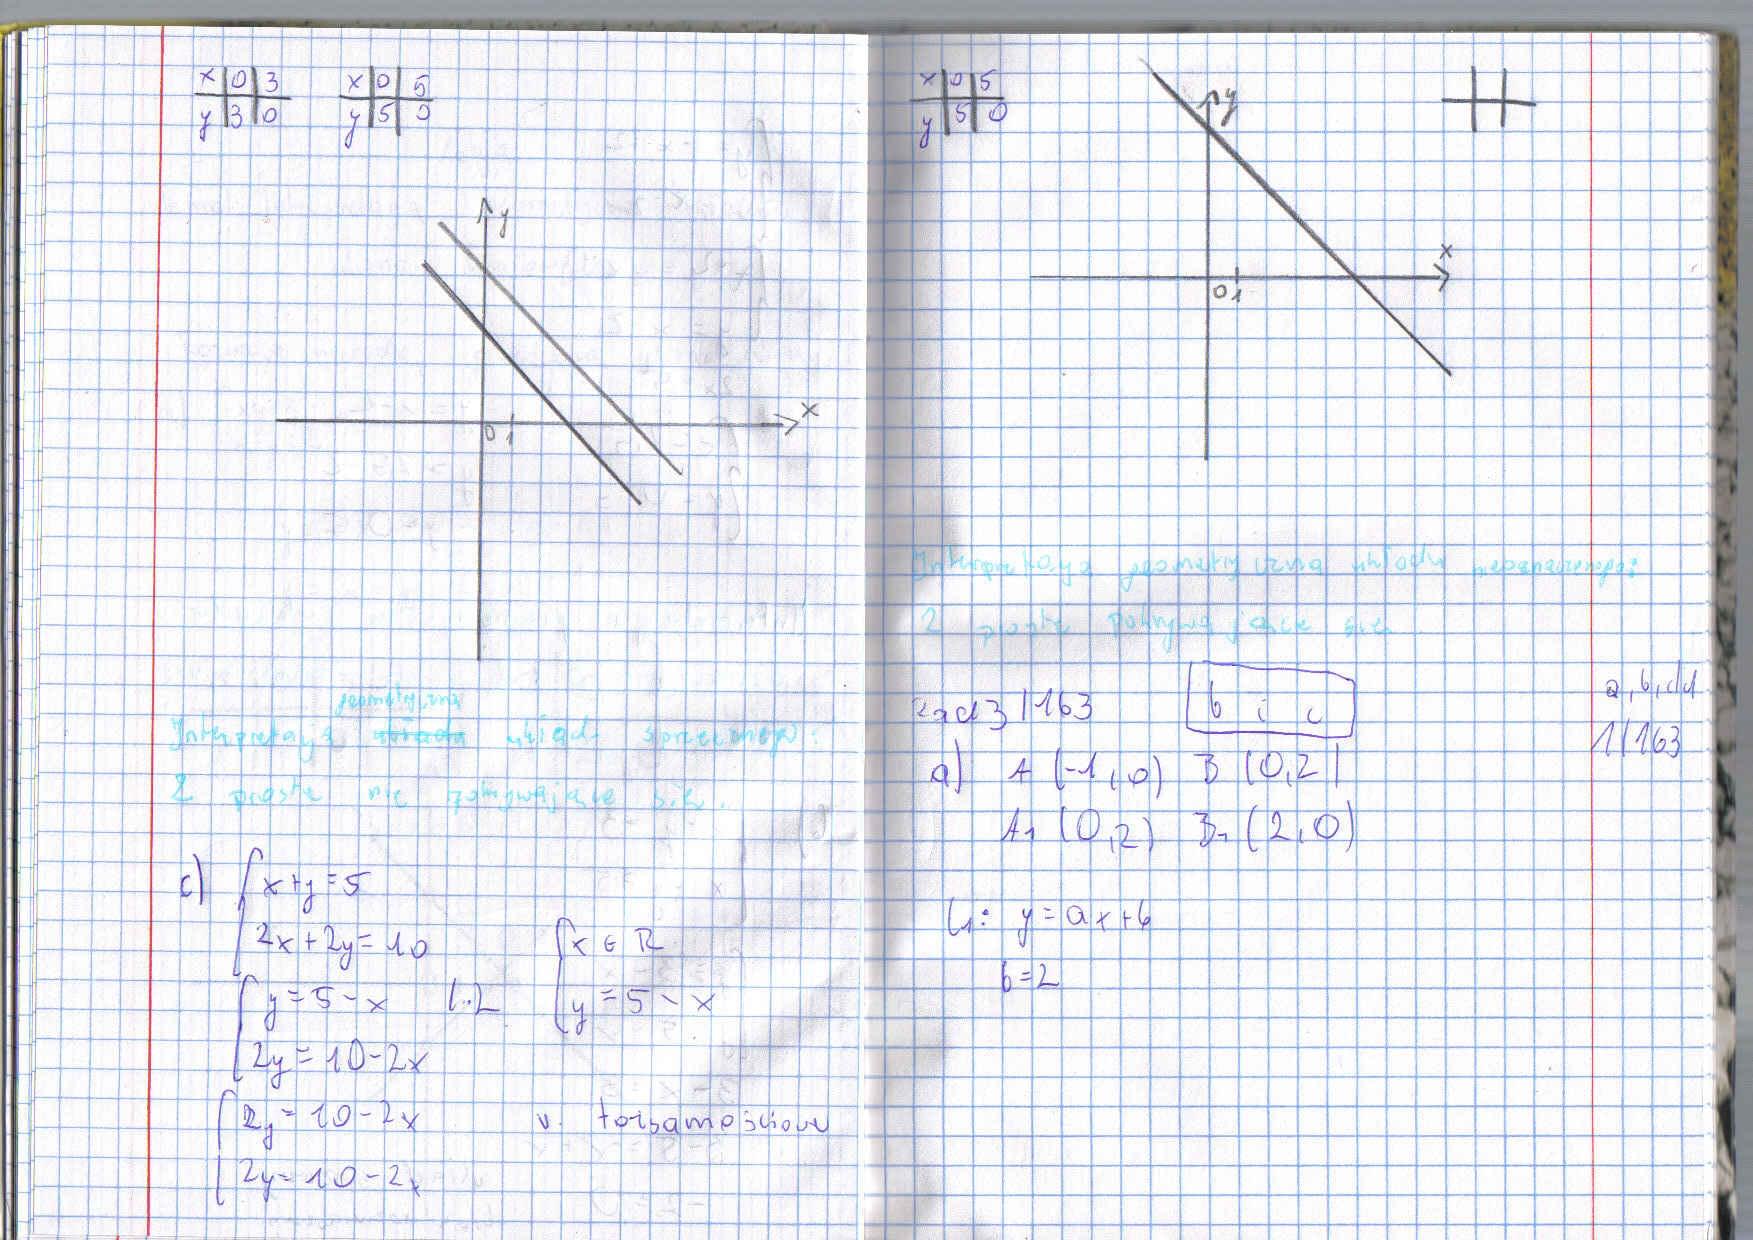 x 0 3
y 3 0
x 0 5
y 5 0
y
x
0 1
geometryczna
Interpretacja układu sprzecznego:
2 proste nie pokrywające się.
c) x+y=5
2x+2y=10
y=5-x |·2
2y=10-2x
2y=10-2x
2y=10-2x
x ∈ R
y=5-x
u. tożsamościowy
x 0 5
y 5 0
y
x
0 1
Interpretacja geometryczna układu nieoznaczonego:
2 proste pokrywające się.
zad 3/163 b i c
a) A (-1,0) B (0,2)
A1 (0,2) B1 (2,0)
l1: y=ax+b
b=2
a,b,c,d
1/163